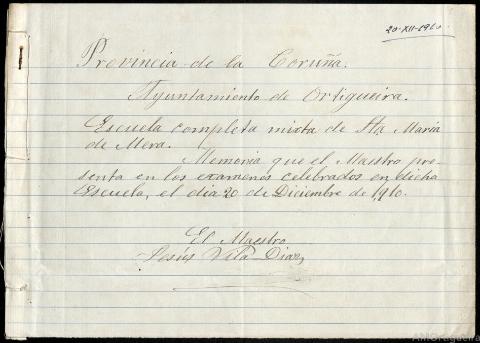 20-XII-1910.
Provincia de la Coruña.
Ayuntamiento de Ortigueira.
Escuela completa mixta de Sta María
de Mera.
Memoria que el Maestro pre-
senta en los exámenes celebrados en dicha
Escuela, el dia 20 de Diciembre de 1,910.
El Maestro
Jesús Vila Diaz
AMOrtigueira